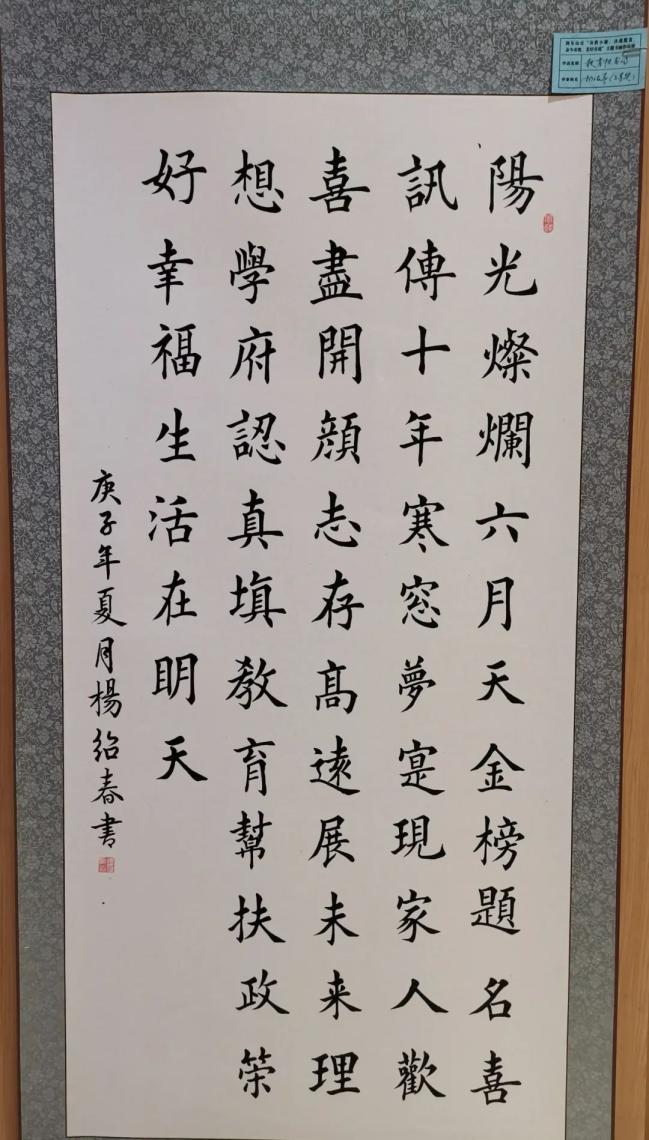 陽光燦爛六月天金榜題名喜
訊傳十年寒窓夢寔現家人歡
喜盡開顔志存髙遠展未来理
想學府認真填教育幫扶政策
好幸福生活在明天
庚子年夏月楊紹春書
作品名称
作者姓名